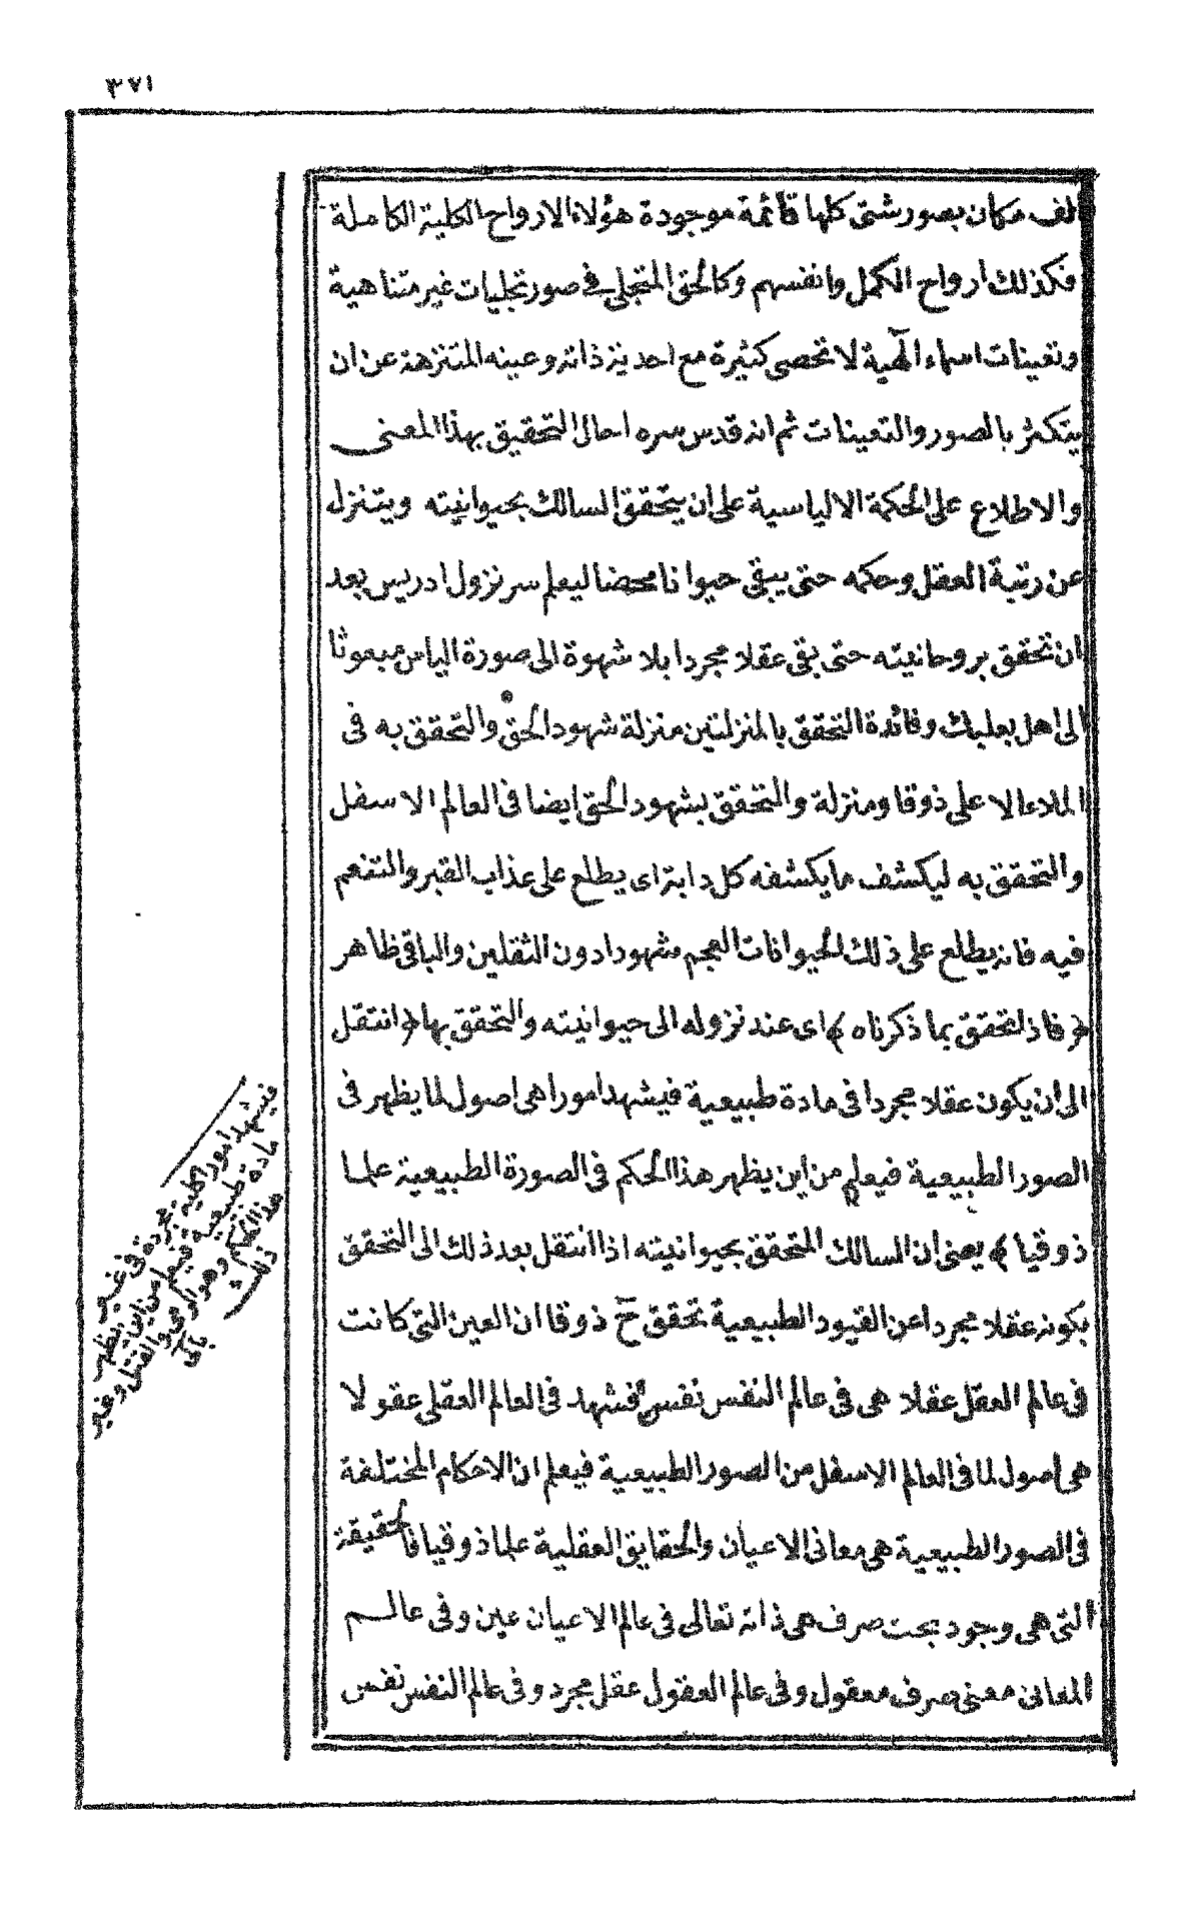 ٣٧١
الف مكان بصور شتى كلها قائمة موجودة هؤلاء الارواح الكلية الكاملة
فكذلك ارواح الكمل وانفسهم وكالحق المتجلى فى صور تجليات غير متناهية
وتعينات اسماء الٓهية لا تحصى كثيرة مع احدية ذاته وعينه المتنزهة عن ان
يتكثر بالصور والتعينات ثم انه قدس سره احال التحقيق بهذا المعنى
والاطلاع على الحكمة الالياسية على ان يتحقق السالك بحيوانيته ويتنزل
عن رتبة العقل وحكمه حتى يبقى حيوانا محضا ليعلم سر نزول ادريس بعد
ان تحقق بروحانيته حتى بقى عقلا مجردا بلا شهوة الى صورة الياس مبعوثا
الى اهل بعلبك وفائدة التحقق بالمنزلتين منزلة شهود الحق والتحقق به فى
الملاء الا على ذوقا ومنزلة والتحقق بشهود الحق ايضا فى العالم الاسفل
والتحقق به ليكشف ما يكشفه كل دابة اى يطلع على عذاب القبر والتنعم
فيه فانه يطلع على ذلك الحيوانات العجم شهودا دون الثقلين والباقى ظاهر
﴿ فاذا تحقق بما ذكرناه ﴾ اى عند نزوله الى حيوانيته والتحقق بها ﴿ انتقل
الى ان يكون عقلا مجردا فى مادة طبيعية فيشهد امورا هى اصول لما يظهر فى
الصور الطبيعية فيعلم من اين يظهر هذا الحكم فى الصورة الطبيعية علما
ذوقيا ﴾ يعنى ان السالك المتحقق بحيوانيته اذا انتقل بعد ذلك الى التحقق
بكونه عقلا مجردا عن القيود الطبيعية تحقق ح ذوقا ان العين التى كانت
فى عالم العقل عقلا هى فى عالم النفس نفس فشهد فى العالم العقلى عقولا
هى اصول لما فى العالم الاسفل من الصور الطبيعية فيعلم ان الاحكام المختلفة
فى الصور الطبيعية هى معانى الاعيان والحقايق العقلية علما ذوقيا فالحقيقة
التى هى وجود بحت صرف هى ذاته تعالى فى عالم الاعيان عين وفى عالم
المعانى معنى صرف معقول وفى عالم العقول عقل مجرد وفى عالم النفس نفس
فيشهد امورا كلية مجردة فى غير
مادة طبيعية فيعلم من اين يظهر
هذا الحكم وهو الرمى والقتل وغير
ذلك
بالى